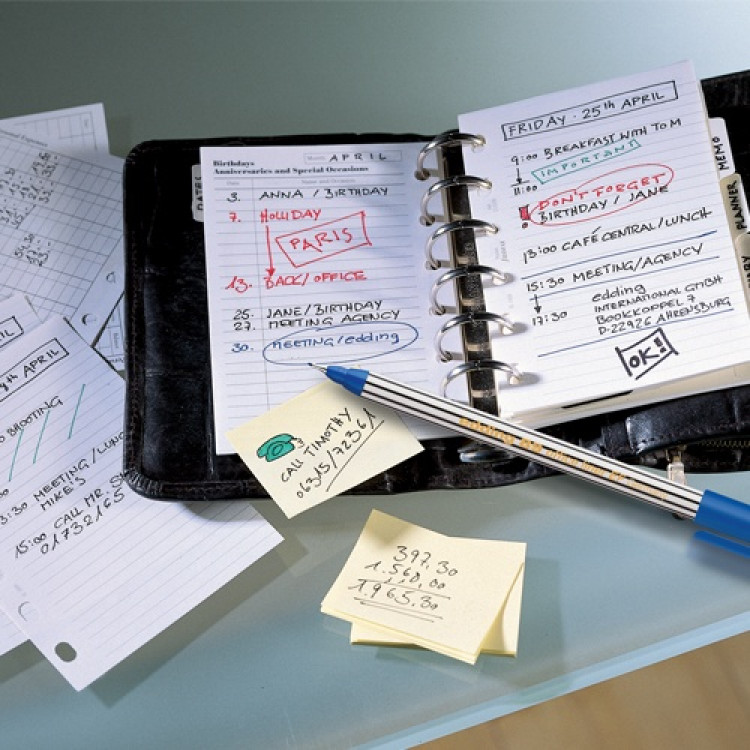 Birthdays
Anniversaries and Special Occasions
APRIL
3. ANNA / BIRTHDAY
7. HOLLIDAY
PARIS
13. BACK / OFFICE
25. JANE / BIRTHDAY
27. MEETING AGENCY
30. MEETING / edding
FRIDAY · 25th APRIL
9:00 BREAKFAST WITH TOM
IMPORTANT
11:00
DON'T FORGET
BIRTHDAY / JANE
13:00 CAFÉ CENTRAL / LUNCH
15:30 MEETING / AGENCY
edding
INTERNATIONAL GMBH
17:30 BOOKKOPPEL 7
D-22926 AHRENSBURG
OK!
MEMO
PLANNER
CALL TIMOTHY
06315/72361
397,30
1.568,00
1.965,30
APRIL
SHOOTING
MEETING / LUNCH
MIKE'S
15:00 CALL MR.
01732165
edding